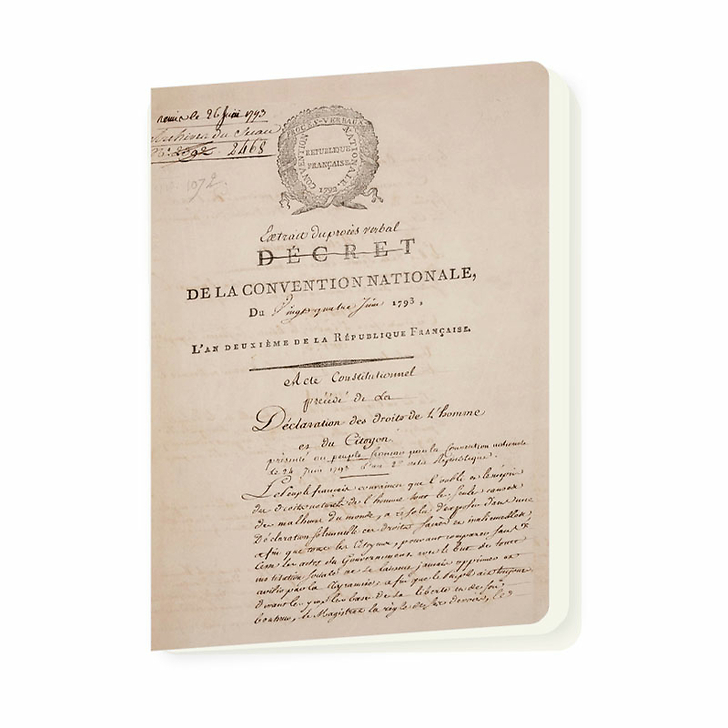 remis le 26 Juin 1793
Archives du Sceau
2468
1072.
PROCÈS-VERBAUX
CONVENTION NATIONALE.
REPUBLIQUE
FRANÇAISE.
1792
Extrait du procès verbal
DÉCRET
DE LA CONVENTION NATIONALE,
Du Vingt-quatre Juin 1793,
L'AN DEUXIÈME DE LA RÉPUBLIQUE FRANÇAISE.
Acte Constitutionnel
précédé de La
Déclaration des droits de l'homme
et du Citoyen
présenté au peuple français par la Convention nationale
le 24 Juin 1793 l'an 2e de la République.
Le peuple français convaincu que l'oubli et le mépris
des droits naturels de l'homme sont les seules causes
des malheurs du monde, a résolu d'exposer dans une
Déclaration solennelle ces droits sacrés et inaliénables,
afin que tous les Citoyens, pouvant comparer sans
cesse les actes du Gouvernement avec le but de toute
institution sociale ne se laissent jamais opprimer et
avilir par la tyrannie; afin que le peuple ait toujours
devant les yeux les bases de sa liberté et de son
bonheur, le Magistrat la règle de ses devoirs, les